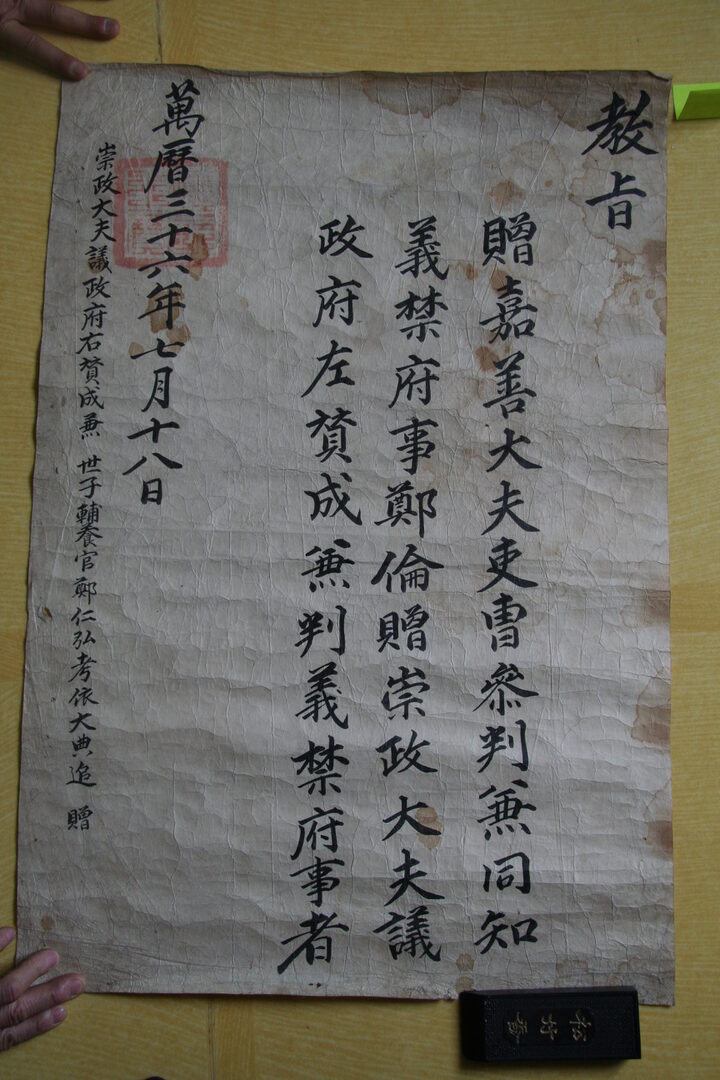 教旨
贈嘉善大夫吏曹叅判兼同知
義禁府事鄭倫贈崇政大夫議
政府左贊成兼判義禁府事者
萬曆三十六年七月十八日
崇政大夫議政府右贊成兼 世子輔養官鄭仁弘考依大典追 贈
松竹香